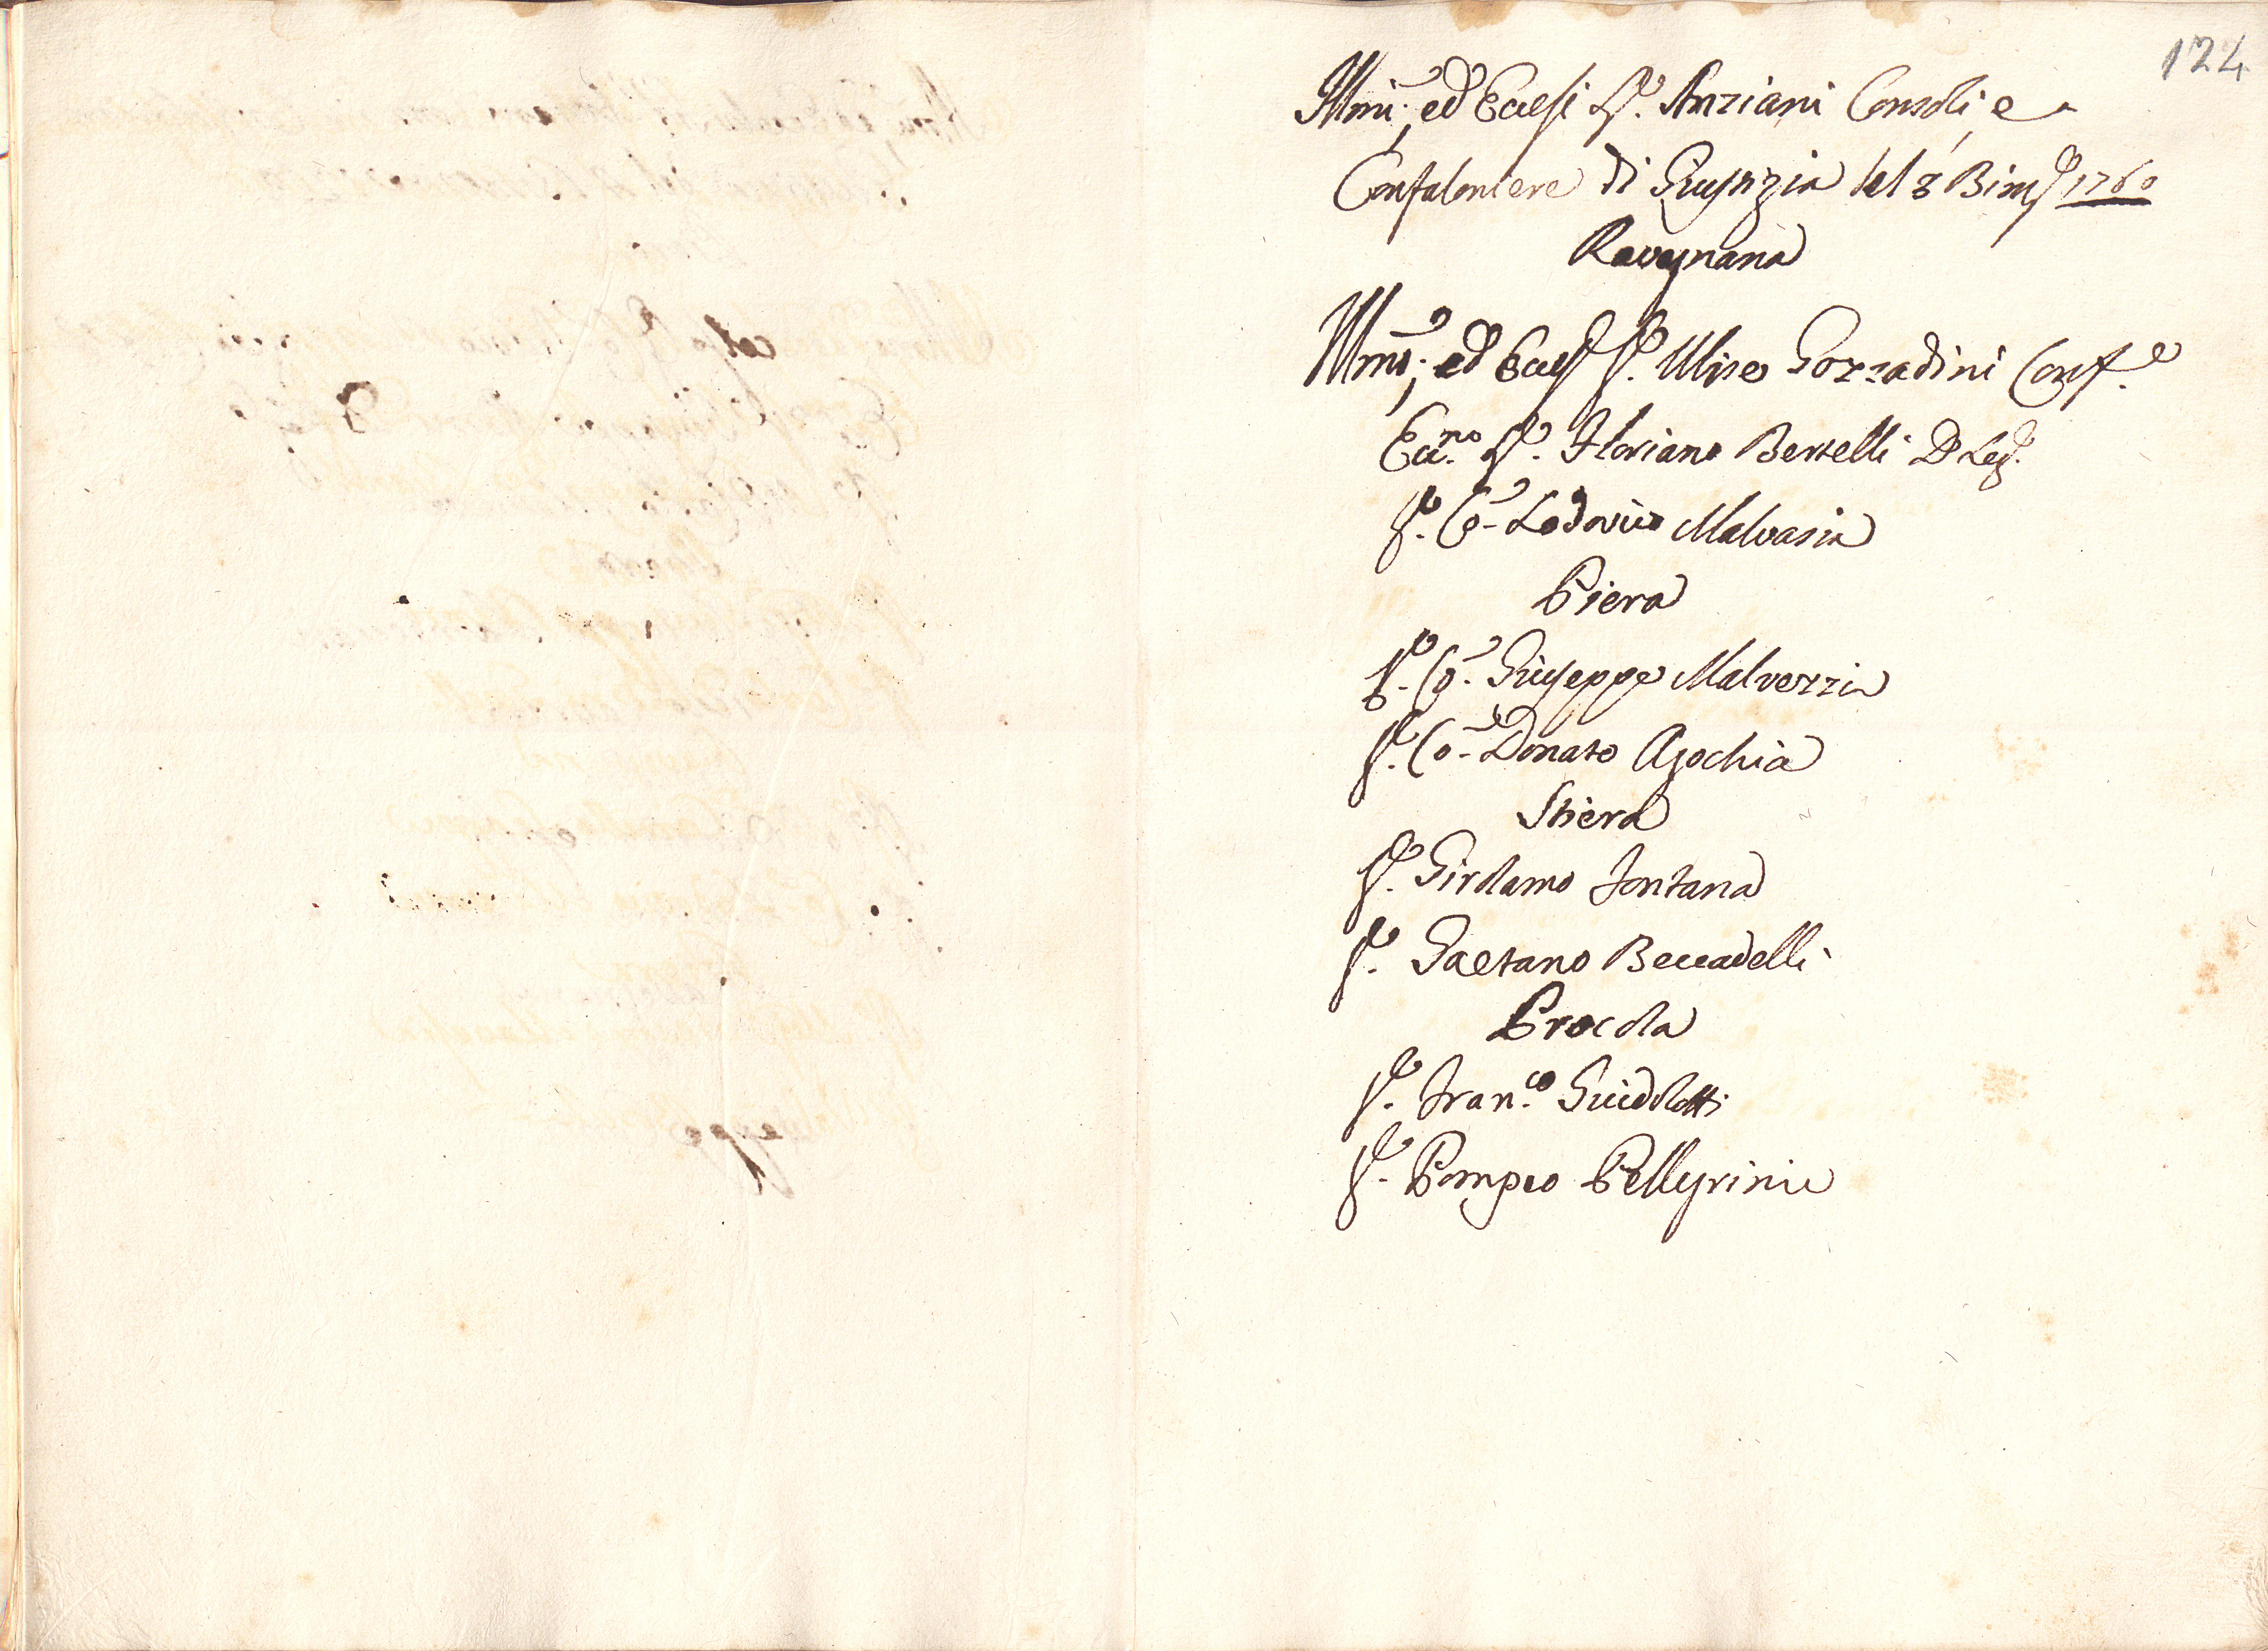 124
Illmi, ed Eccelsi Sr. Anziani Consoli, e
Confaloniere di Giustizia del 3 Bimre 1760
Ravegnana
Illmo; ed Eccelso Sr. Ulisse Gozzadini Conf.e
Ecc.mo Sr. Floriano Bertelli D Leg.
Sr. Co- Lodovico Malvasia
Piera
Sr. Co- Giuseppe Malvezzi
Sr. Co- Donato Agochia
Stiera
Sr. Girolamo Fontana
Sr. Gaetano Beccadelli
Procola
Sr. Fran.co Guidolotti
Sr. Pompeo Pellgrini